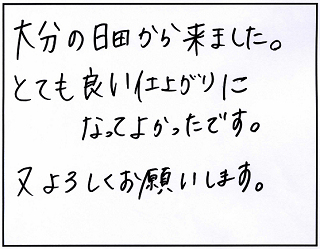 大分の日田から来ました。
とても良い仕上がりに
なってよかったです。
又よろしくお願いします。